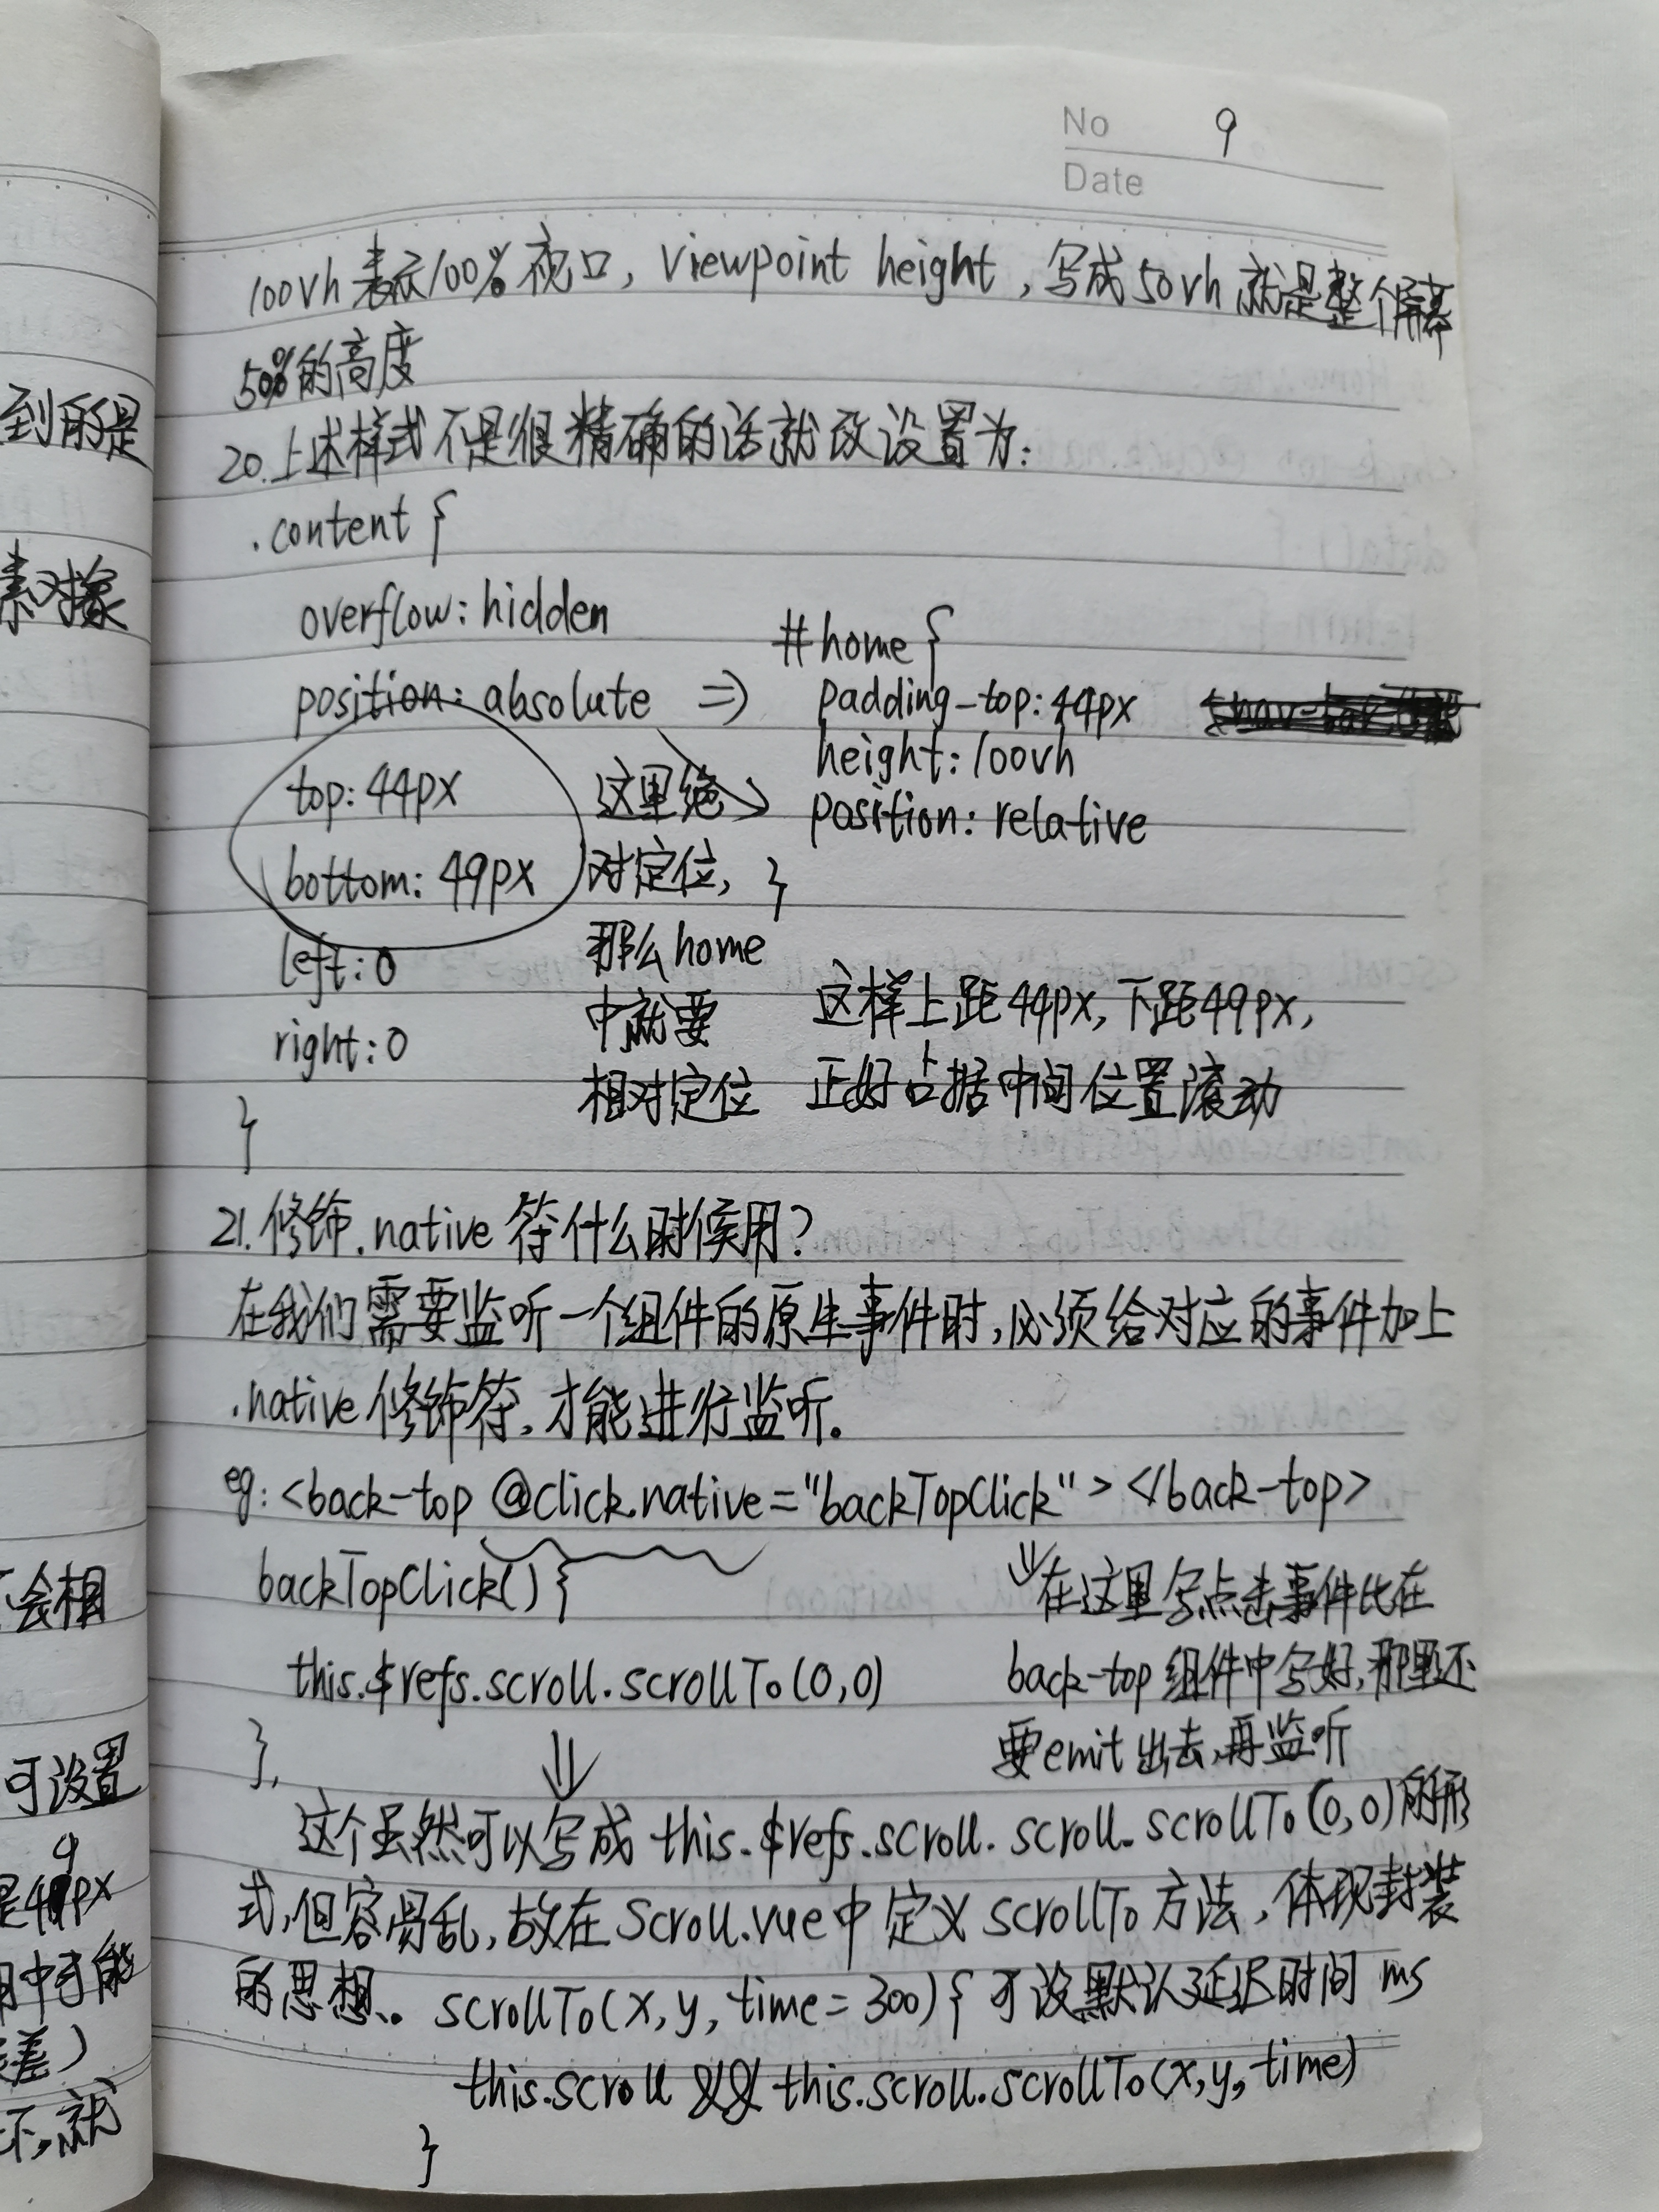 No 9
Date
100vh表示100%视口, viewpoint height, 写成50vh就是整个屏幕
50%的高度
20.上述样式不是很精确的话就改设置为:
.content {
overflow: hidden
position: absolute =>
top: 44px
bottom: 49px
left: 0
right: 0
}
这里绝
对定位,
那么home
中就要
相对定位
#home {
padding-top: 44px
height: 100vh
position: relative
}
这样上距44px, 下距49px,
正好占据中间位置滚动
21.修饰.native符什么时候用?
在我们需要监听一个组件的原生事件时,必须给对应的事件加上
.native修饰符,才能进行监听。
eg: <back-top @click.native="backTopClick"></back-top>
backTopClick() {
this.$refs.scroll.scrollTo(0,0)
},
在这里写点击事件比在
back-top组件中写好,那里还
要emit出去,再监听
这个虽然可以写成 this.$refs.scroll.scroll.scrollTo(0,0)的形
式,但容易乱,故在Scroll.vue中定义scrollTo方法,体现封装
的思想。 scrollTo(x, y, time=300) { 可设默认延迟时间 ms
this.scroll && this.scroll.scrollTo(x, y, time)
}
到的是
素对象
会相
可设置
9
是49px
中可能
差)
不,就